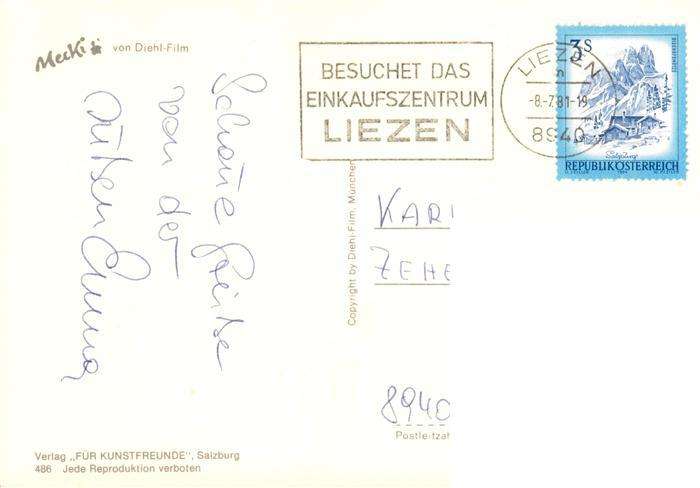 Mecki von Diehl-Film
Schöne Grüße
von der
BESUCHET DAS
EINKAUFSZENTRUM
LIEZEN
LIEZEN
-8.-7.81-19
8940
3 S
REPUBLIK ÖSTERREICH
Copyright by Diehl-Film, München
KARL
ZEHE
8940
Postleitzah
Verlag „FÜR KUNSTFREUNDE", Salzburg
486 Jede Reproduktion verboten